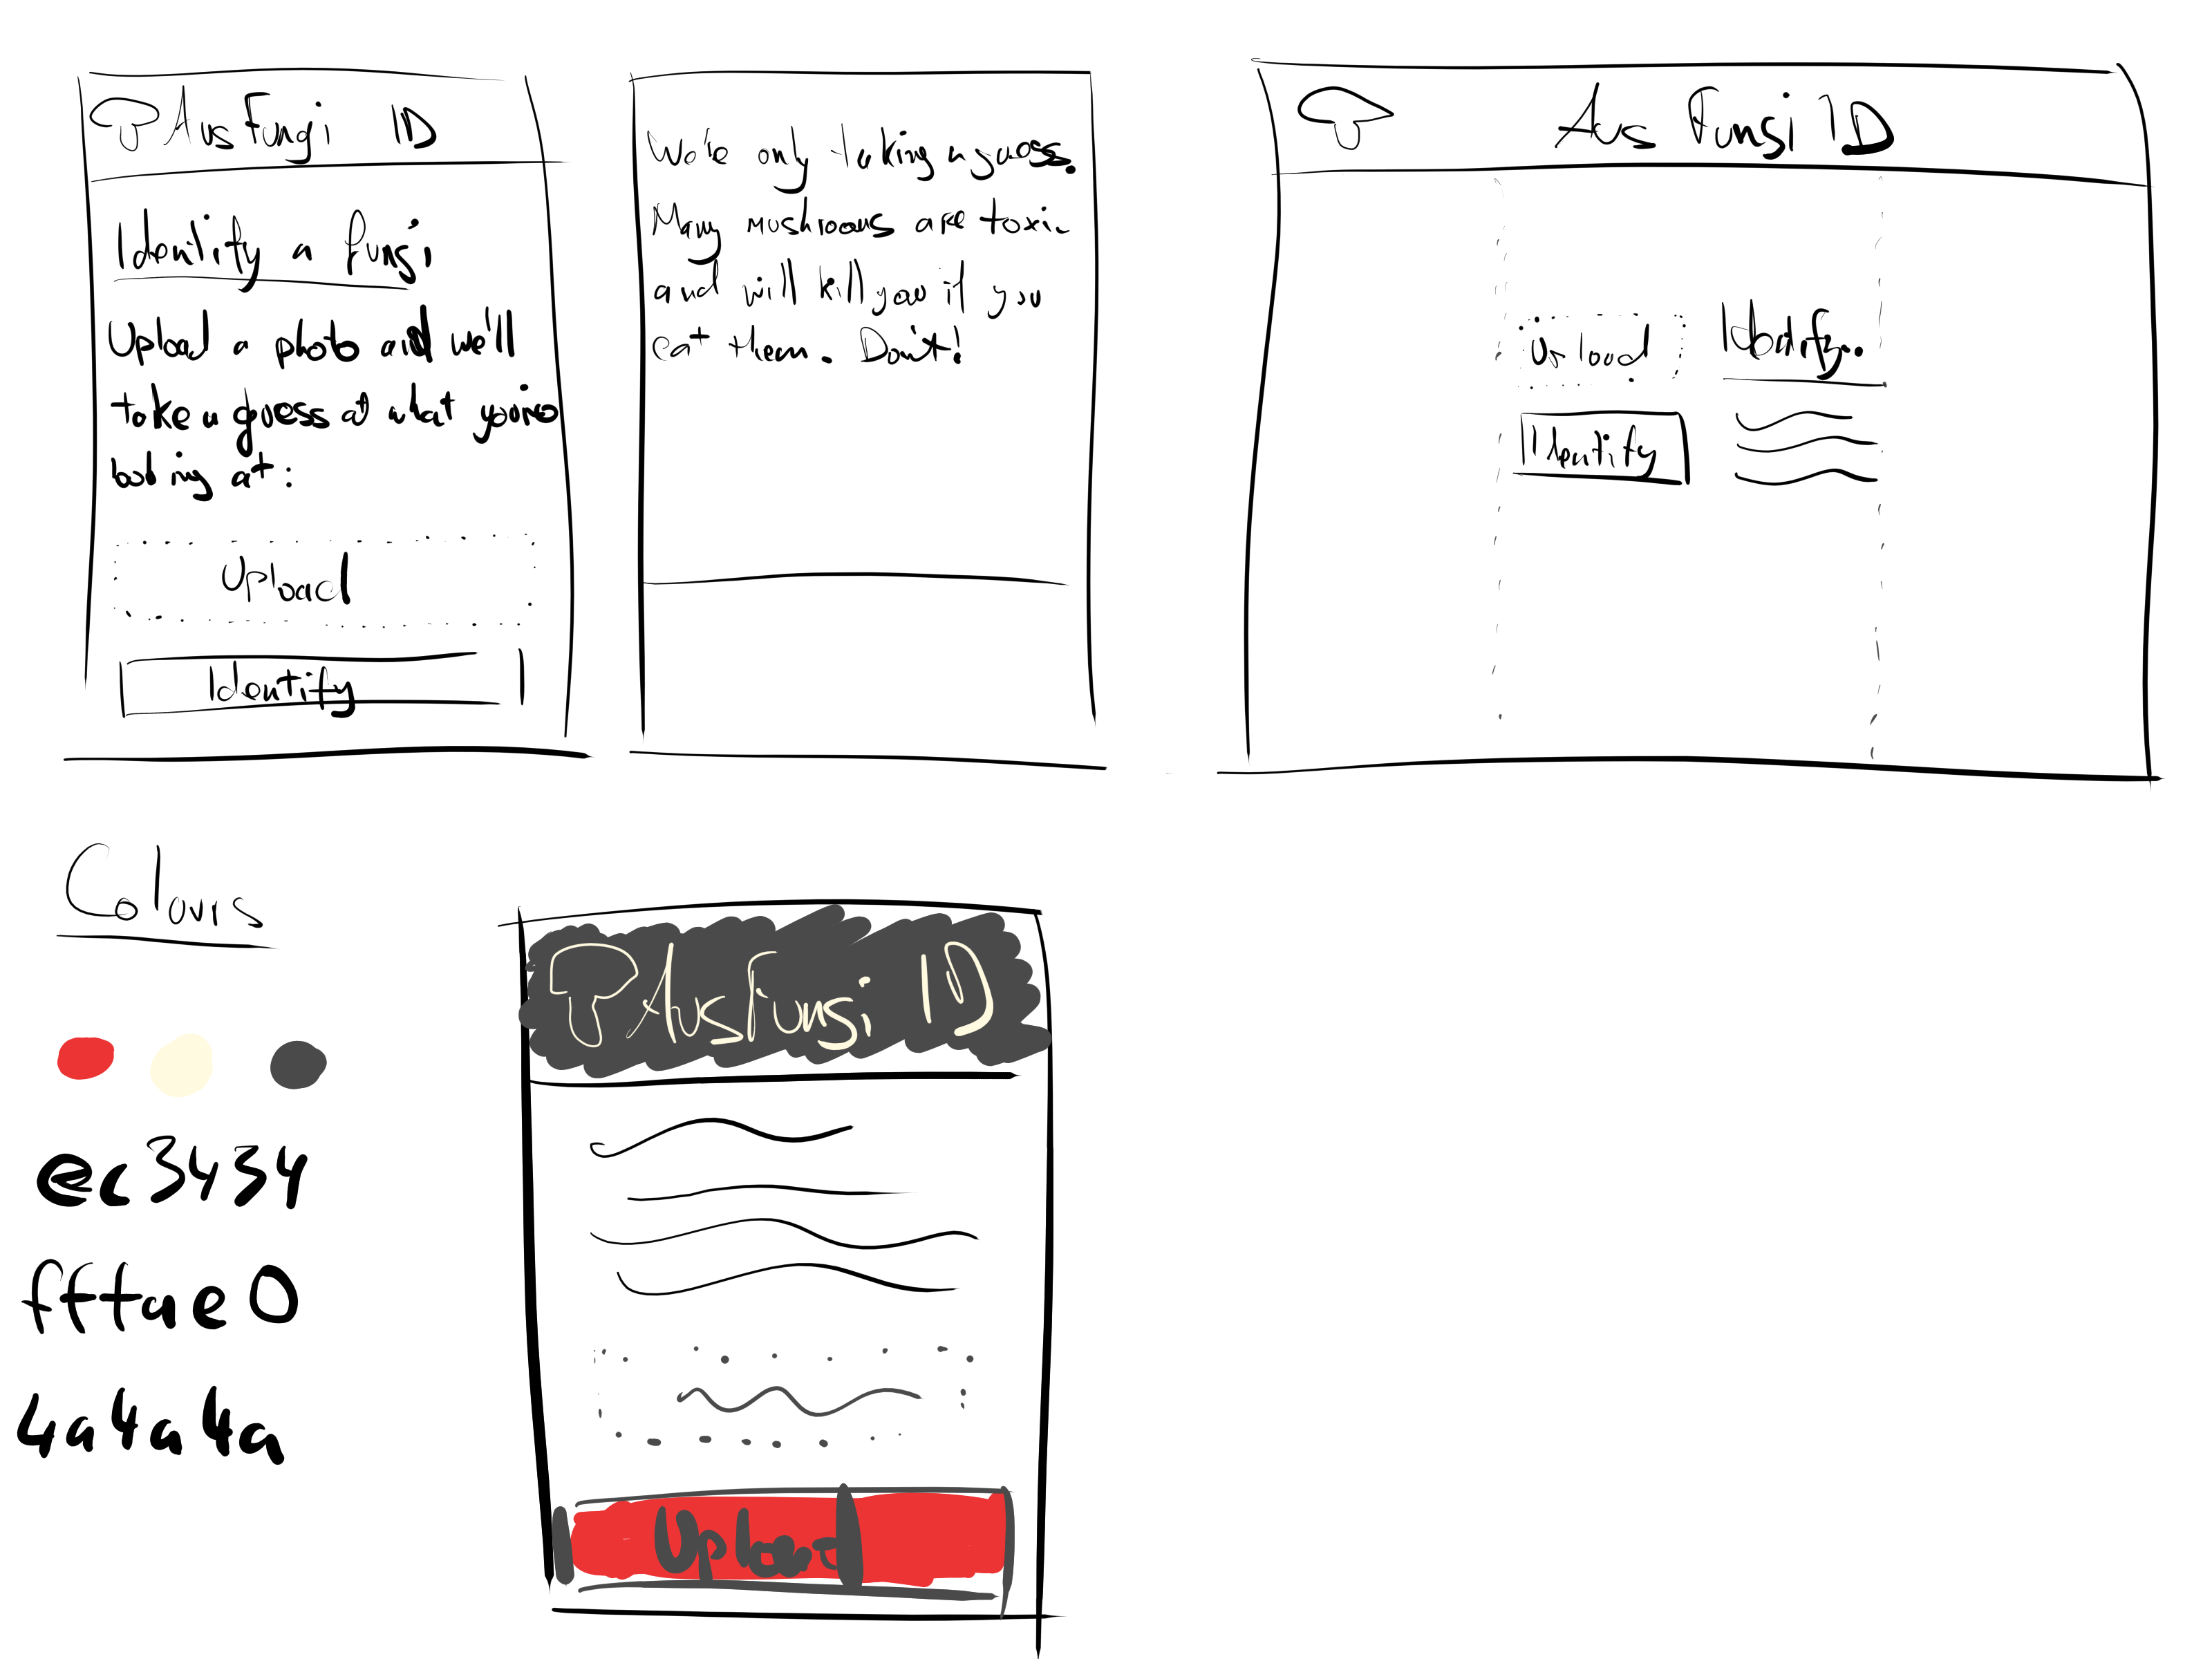 Aus Fungi ID
Identify a fungi
Upload a photo and we'll
take a guess at what you're
looking at:
Upload
Identify
We're only taking a guess.
Many mushrooms are toxic
and will kill you if you
eat them. Don't!
Aus Fungi ID
Upload
Identify
Identify..
Colours
ec3434
fffae0
4a4a4a
Aus Fungi ID
Upload